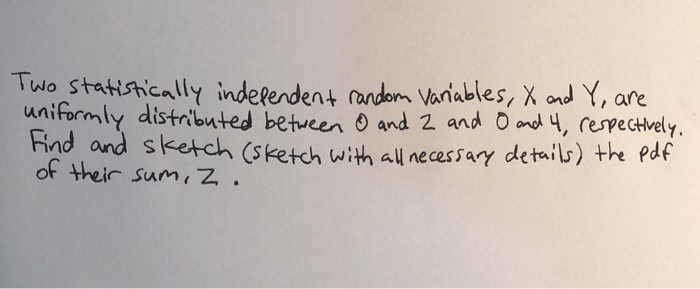 Two statistically independent random variables, X and Y, are
uniformly distributed between 0 and 2 and 0 and 4, respectively.
Find and sketch (sketch with all necessary details) the pdf
of their sum, Z.